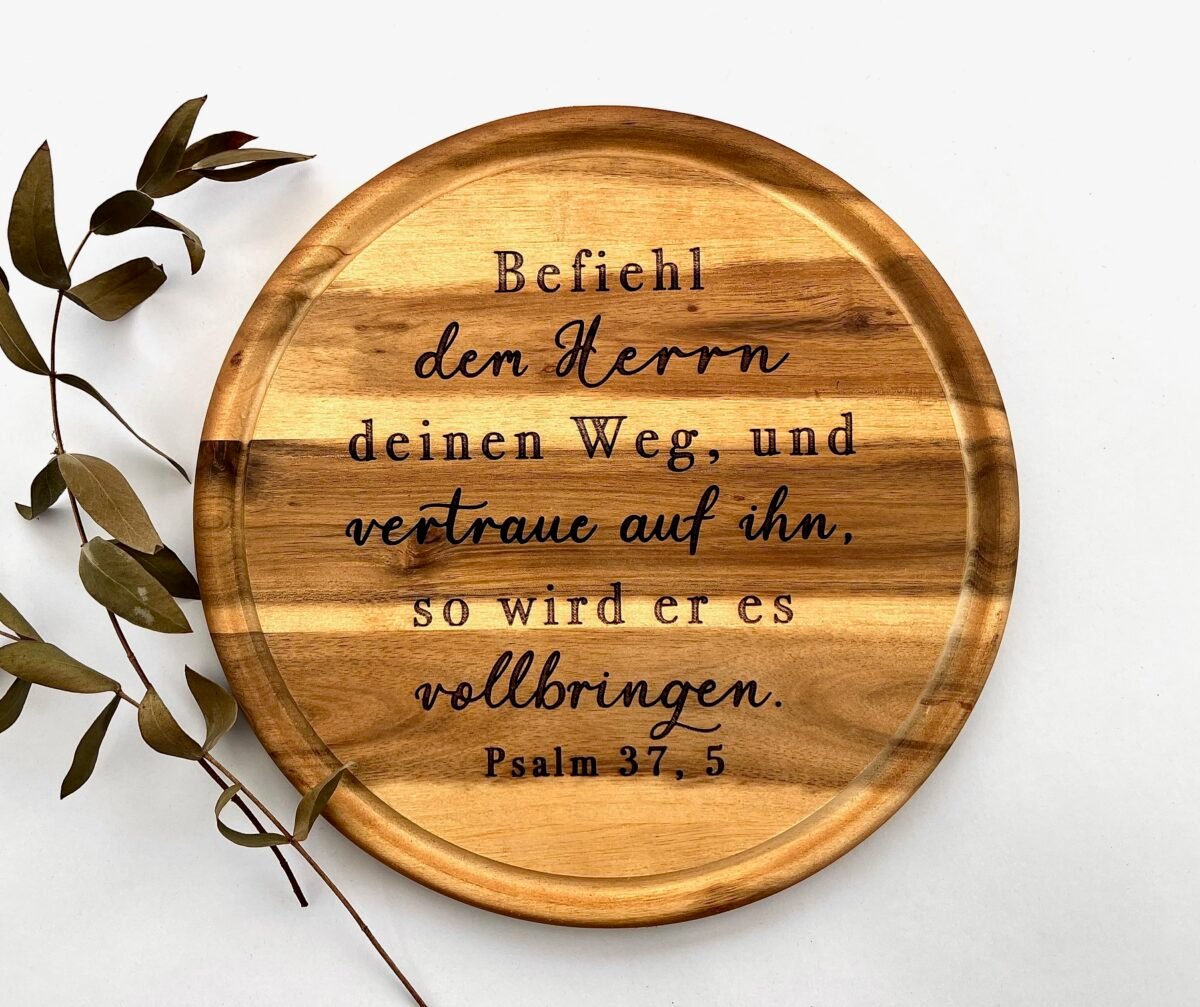 Befiehl
dem Herrn
deinen Weg, und
vertraue auf ihn,
so wird er es
vollbringen.
Psalm 37, 5